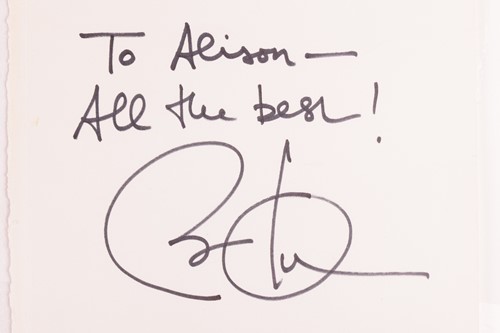 To Alison —
All the best!